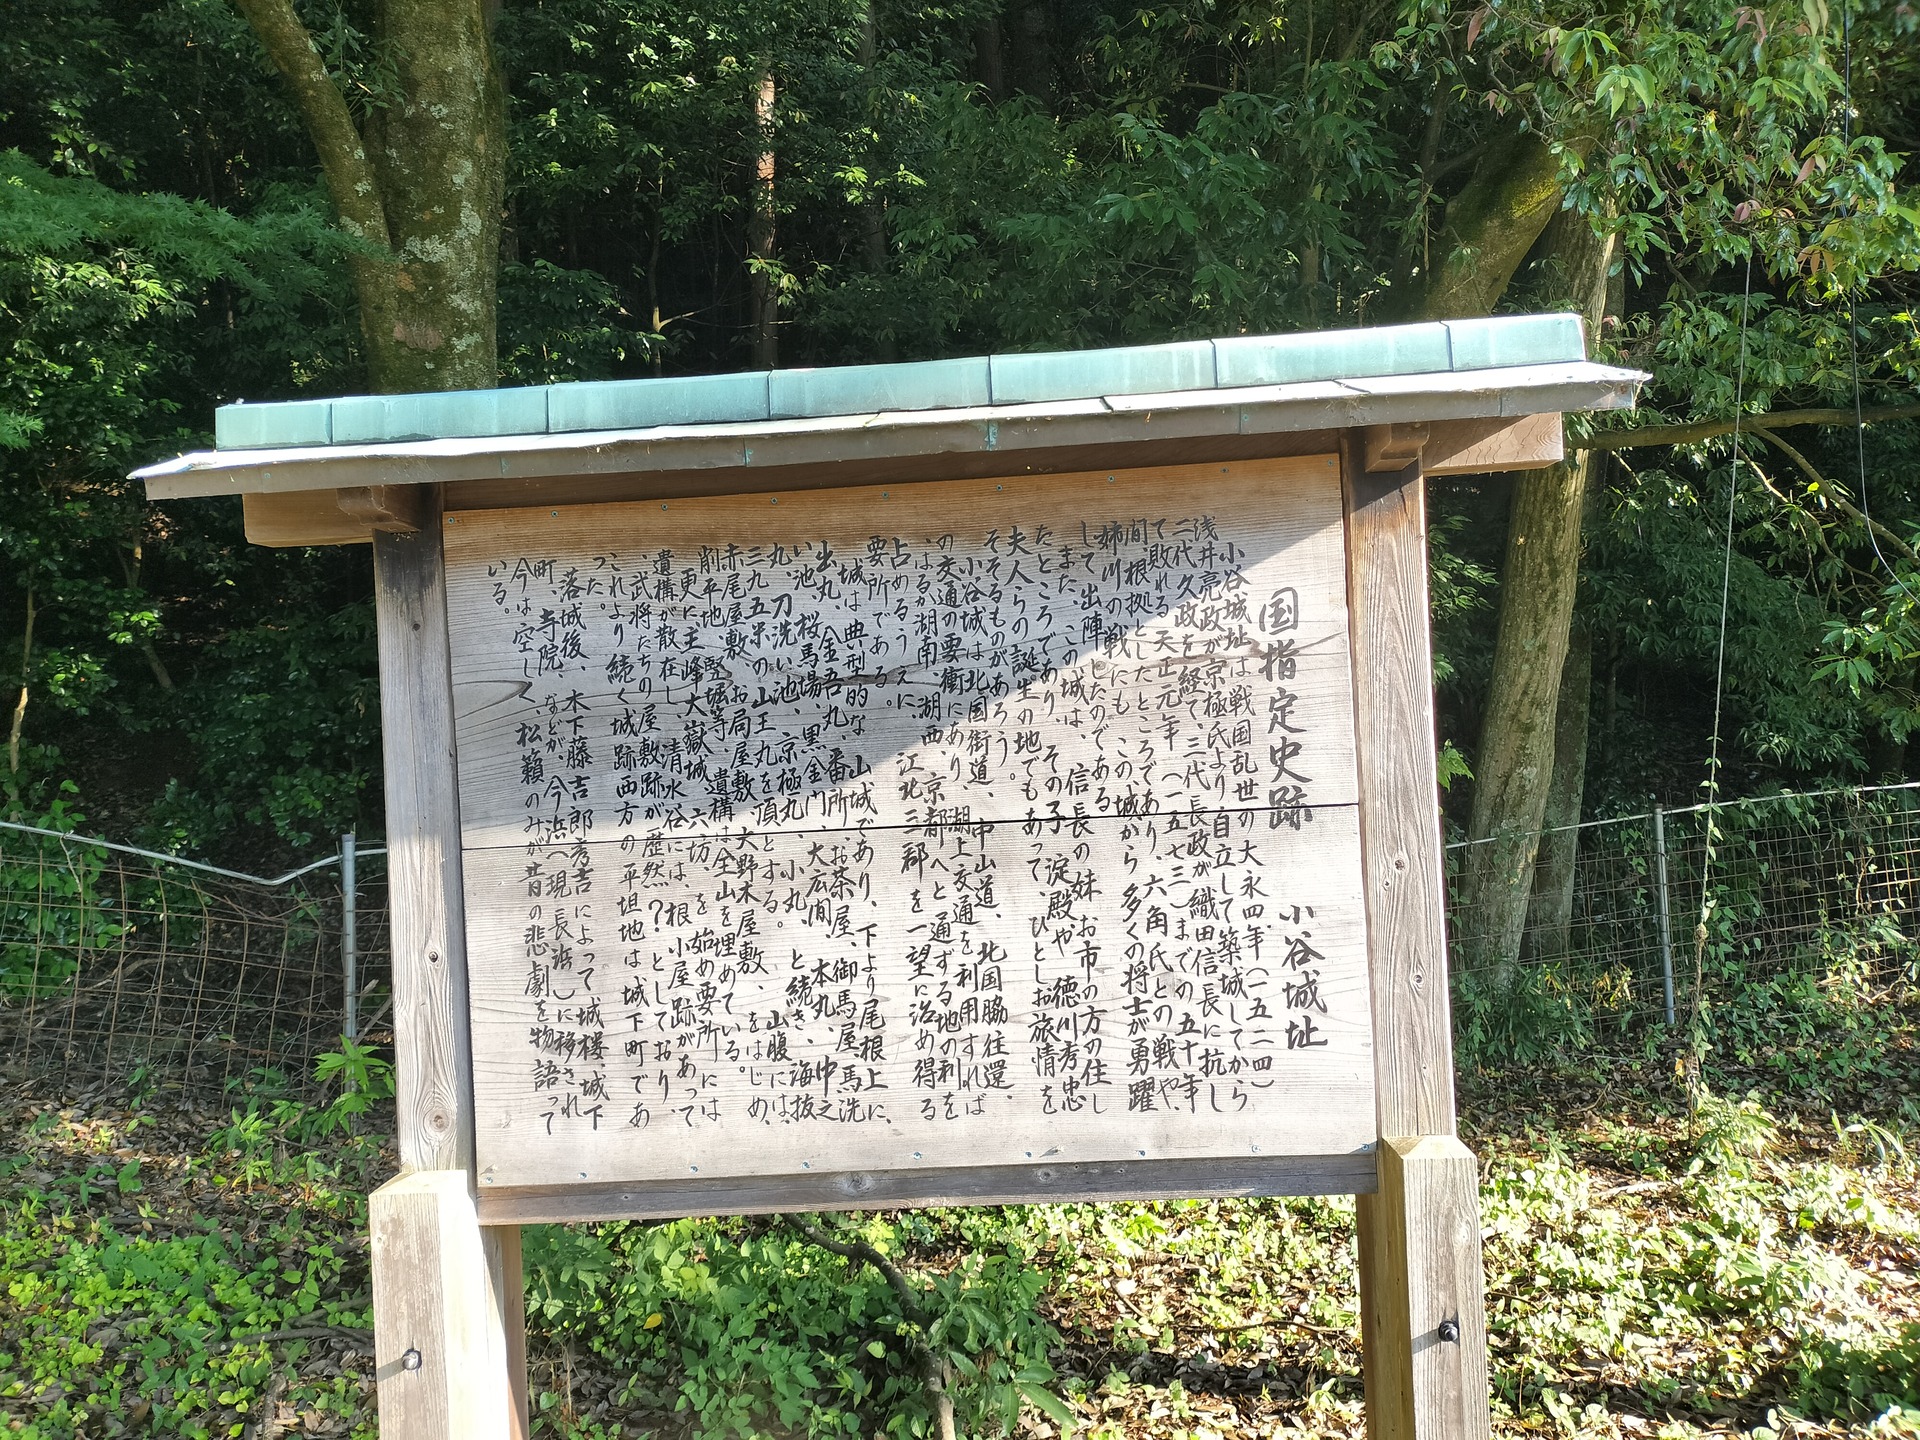 国指定史跡 小谷城址
小谷城址は戦国乱世の大永四年（一五二四）
浅井亮政が京極氏より自立して築城してから
二代久政を経て、三代長政が織田信長に抗し
て敗れる天正元年（一五七三）までの五十年
間、根拠としたところであり、六角氏との戦や、
姉川の戦にも、この城から多くの将士が勇躍
して出陣したのである。
また、この城は、信長の妹お市の方の住し
たところであり、その子、淀殿や、徳川秀忠
夫人らの誕生の地でもあって、ひとしお旅情を
そそるものがあろう。
小谷城は北国街道、中山道、北国脇往還、
の交通の要衝にあり、湖上交通を利用すれば
はるか湖南、湖西、京都へと通ずる地の利を
占めるうえに、江北三郡を一望に治め得る
要所である。
城は典型的な山城であり、下より尾根上に、
出丸、金吾丸、番所、お茶屋、御馬屋、馬洗
い池、桜馬場、黒金門、大広間、本丸、中之
丸、刀洗い池、京極丸、小丸、と続き、海抜
三九五米の山王丸を頂とする。山腹には、
赤尾屋敷、お局屋敷、大野木屋敷、をはじめ、
削平地、竪堀等、遺構は全山を埋めている。
更に、主峰大嶽城、六坊、を始め要所には
遺構が散在し、清水谷には、根小屋跡があって
、武将たちの屋敷跡が歴然？としており、
これより続く城跡西方の平坦地は城下町であ
った。
落城後、木下藤吉郎秀吉によって城楼、城下
町、寺院、などが、今浜へ（現長浜）に移され
今は空しく、松籟のみが昔の悲劇を物語って
いる。